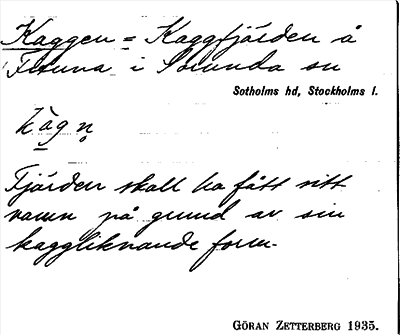 Kaggen = Kaggfjärden å
i Sorunda sn
Sotholms hd, Stockholms l.
kàg n̥
Fjärden skall ha fått sitt
namn på grund av sin
kaggliknande form.
GÖRAN ZETTERBERG 1935.